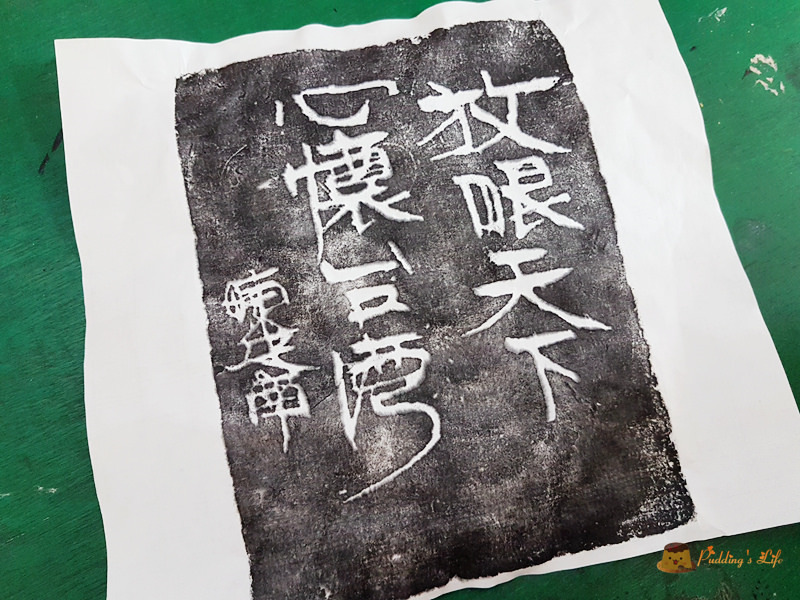 放眼天下
心懷台灣
Pudding's Life